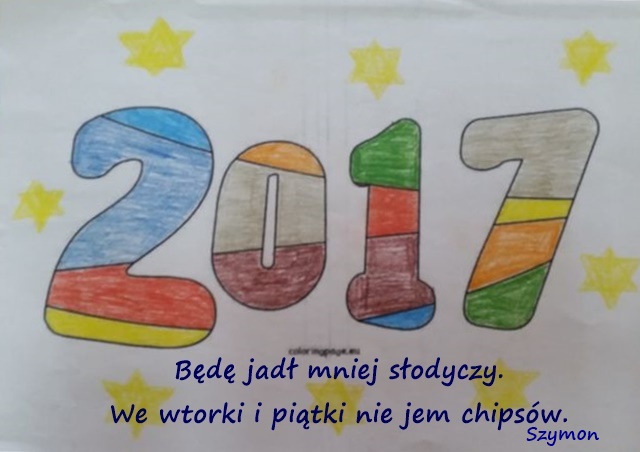 2017
coloringpage.eu
Będę jadł mniej słodyczy.
We wtorki i piątki nie jem chipsów.
Szymon